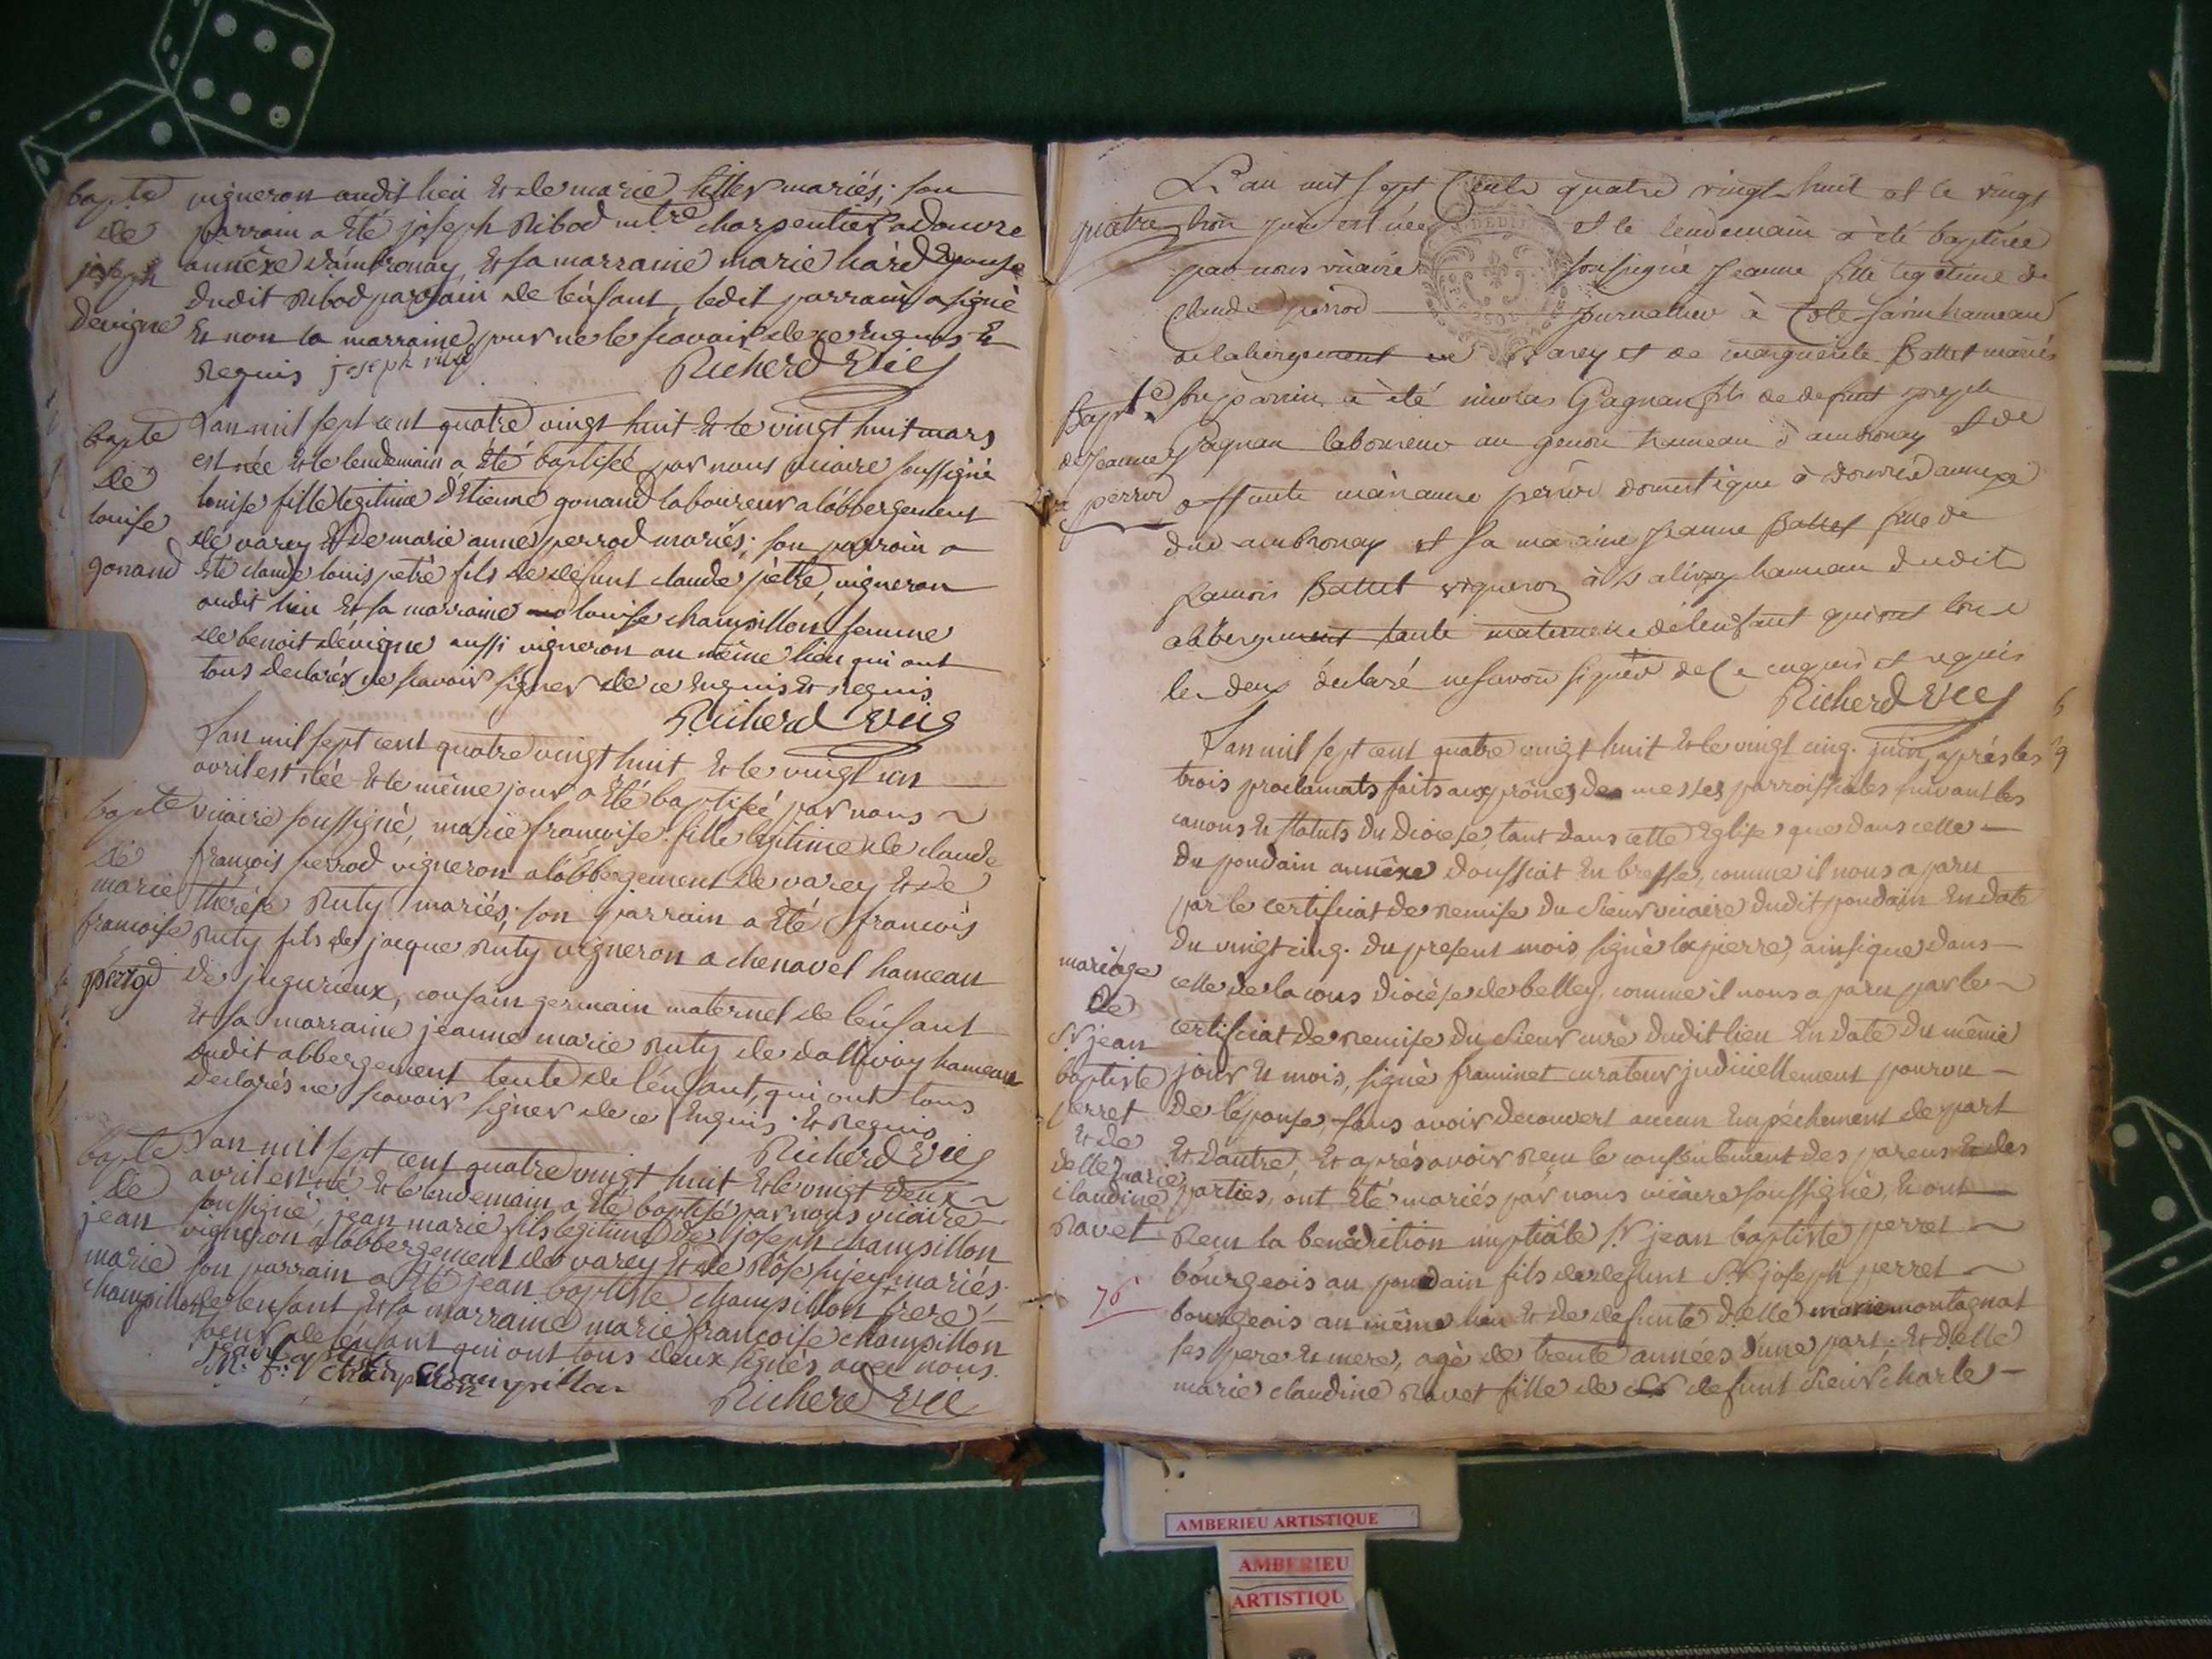 bapte
de
joseph
devigne
vigneron audit lieu Et de marie filler mariés; son
parrain a Eté joseph Ribod mtre charpentier a douvre
annéxe d'ambronay, Et sa marraine marie hard Epouse
dudit Ribod parrain de l'enfant, ledit parrain a signé
Et non la marraine pour ne le scavoir de ce Enquis Et
Requis joseph ribod
Richerd Vic
bapte
de
louise
gonand
L'an mil sept cent quatre vingt huit Et le vingt huit mars
est née Et le lendemain a Eté baptisée par nous vicaire soussigné
louise fille legitime d'Etienne gonand laboureur a l'abbergement
de varey Et de marie anne perrod mariés; son parrain a
Eté claude louis petre fils de defunt claude petre, vigneron
audit lieu Et sa marraine louise champillon femme
de benoit devigne aussi vigneron au même lieu qui ont
tous declarés ne scavoir signer de ce Enquis Et Requis
Richerd Vic
bapte
de
marie
françoise
perrod
L'an mil sept cent quatre vingt huit Et le vingt un
avril est née Et le même jour a Eté baptisée par nous
vicaire soussigné, marie françoise fille legitime de claude
françois perrod vigneron a l'abbergement de varey Et de
therèse Ruty mariés; son parrain a Eté françois
Ruty fils de jacque Ruty vigneron a chenavel hameau
de jujurieux, cousain germain maternel de l'enfant
Et sa marraine jeanne marie Ruty de dallivoy hameau
dudit abbergement tente de l'enfant, qui ont tous
declarés ne scavoir signer de ce Enquis Et Requis
Richerd Vic
bapte
de
jean
marie
champillon
L'an mil sept cent quatre vingt huit Et le vingt deux
avril est né Et le lendemain a Eté baptisé par nous vicaire
soussigné, jean marie fils legitime de joseph champillon
vigneron a l'abbergement de varey Et de Rose mariés.
son parrain a Eté jean baptiste champillon frere
de l'enfant Et sa marraine marie françoise champillon
soeur de l'enfant qui ont tous deux signés avec nous.
jean baptiste champillon
m. f. champillon
Richerd Vic
L'an mil sept Cents quatre vingt huit et le vingt
quatre juin est née et le lendemain à été baptisée
par nous vicaire soussigné Jeanne fille legitime de
Claude perrod journalier à Cote savin hameau
de labergement de Varey et de marguerite Battet mariés
Bapte
de Jeanne
perrod
son parrain à été nicolas Gagnan fils de defunt joseph
Gagnan laboureur au genou hameau d'ambronay et de
domestique à douvre annexe
dud ambronay et sa maraine Jeanne Battet fille de
francois Battet vigneron à dalivoy hameau dudit
abbergement tante maternelle de lenfant qui ont tous
les deux déclaré ne savoir signer de Ce enquis et requis
Richerd Vic
mariage
de
Sr jean
baptiste
perret
Et de
delle marie
claudine
Ravet
L'an mil sept cent quatre vingt huit Et le vingt cinq juin, après les
trois proclamats faits aux prônes des messes parroissiales suivant les
canons Et statuts du diocese, tant dans cette Eglise que dans celle
du poudain annéxe doussiat En bresse, comme il nous a paru
par le certificat de Remise du Sieur vicaire dudit poudain En date
du vingt cinq du present mois signé lapierre, ainsi que dans
celle de lacous diocèse de belley, comme il nous a paru par le
certificat de Remise du Sieur curé dudit lieu En date du même
jour Et mois, signé framinet curateur judiciellement pourvu
de l'épouse, sans avoir decouvert aucun Empêchement de part
Et dautre, Et après avoir Recu le consentement des parens Et des
parties, ont Eté mariés par nous vicaire soussigné, Et ont
Recu la benediction nuptiale Sr jean baptiste perret
bourgeois au poudain fils de defunt Sr joseph perret
bourgeois au même lieu Et de defunte delle marie montagnat
ses pere Et mere, agé de trente années d'une part; Et delle
marie claudine Ravet fille de defunt Sieur charle
76
AMBERIEU ARTISTIQUE
AMBERIEU
ARTISTIQU